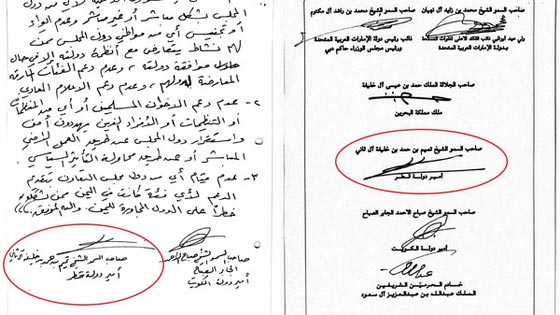 المجلس بشكل مباشر أو غير مباشر وعدم إيواء
أو تجنيس أي من مواطني دول المجلس ممن
لهم نشاط يتعارض مع أنظمة دولته إلا في حال
موافقة دولته، وعدم دعم الفئات المارقة
المعارضة لدولهم، وعدم دعم الإعلام المعادي
٢- عدم دعم الإخوان المسلمين أو أي من المنظمات
أو التنظيمات أو الأفراد الذين يهددون أمن
واستقرار دول المجلس عن طريق العمل الأمني
المباشر أو عن طريق محاولة التأثير السياسي
٣- عدم قيام أي من دول مجلس التعاون بتقديم
الدعم لأي فئة كانت في اليمن ممن يشكلون
خطراً على الدول المجاورة لليمن. والله الموفق،،،
صاحب السمو الشيخ صباح الأحمد
الجابر الصباح
أمير دولة الكويت
صاحب السمو الشيخ تميم بن حمد بن خليفة آل ثاني
أمير دولة قطر
صاحب السمو الشيخ محمد بن راشد آل مكتوم
نائب رئيس دولة الإمارات العربية المتحدة
ورئيس مجلس الوزراء حاكم دبي
صاحب السمو الشيخ محمد بن زايد آل نهيان
ولي عهد أبوظبي نائب القائد الأعلى للقوات المسلحة
بدولة الإمارات العربية المتحدة
صاحب الجلالة الملك حمد بن عيسى آل خليفة
ملك مملكة البحرين
صاحب السمو الشيخ تميم بن حمد بن خليفة آل ثاني
أمير دولة قطر
صاحب السمو الشيخ صباح الاحمد الجابر الصباح
أمير دولة الكويت
خادم الحرمين الشريفين
الملك عبدالله بن عبدالعزيز آل سعود